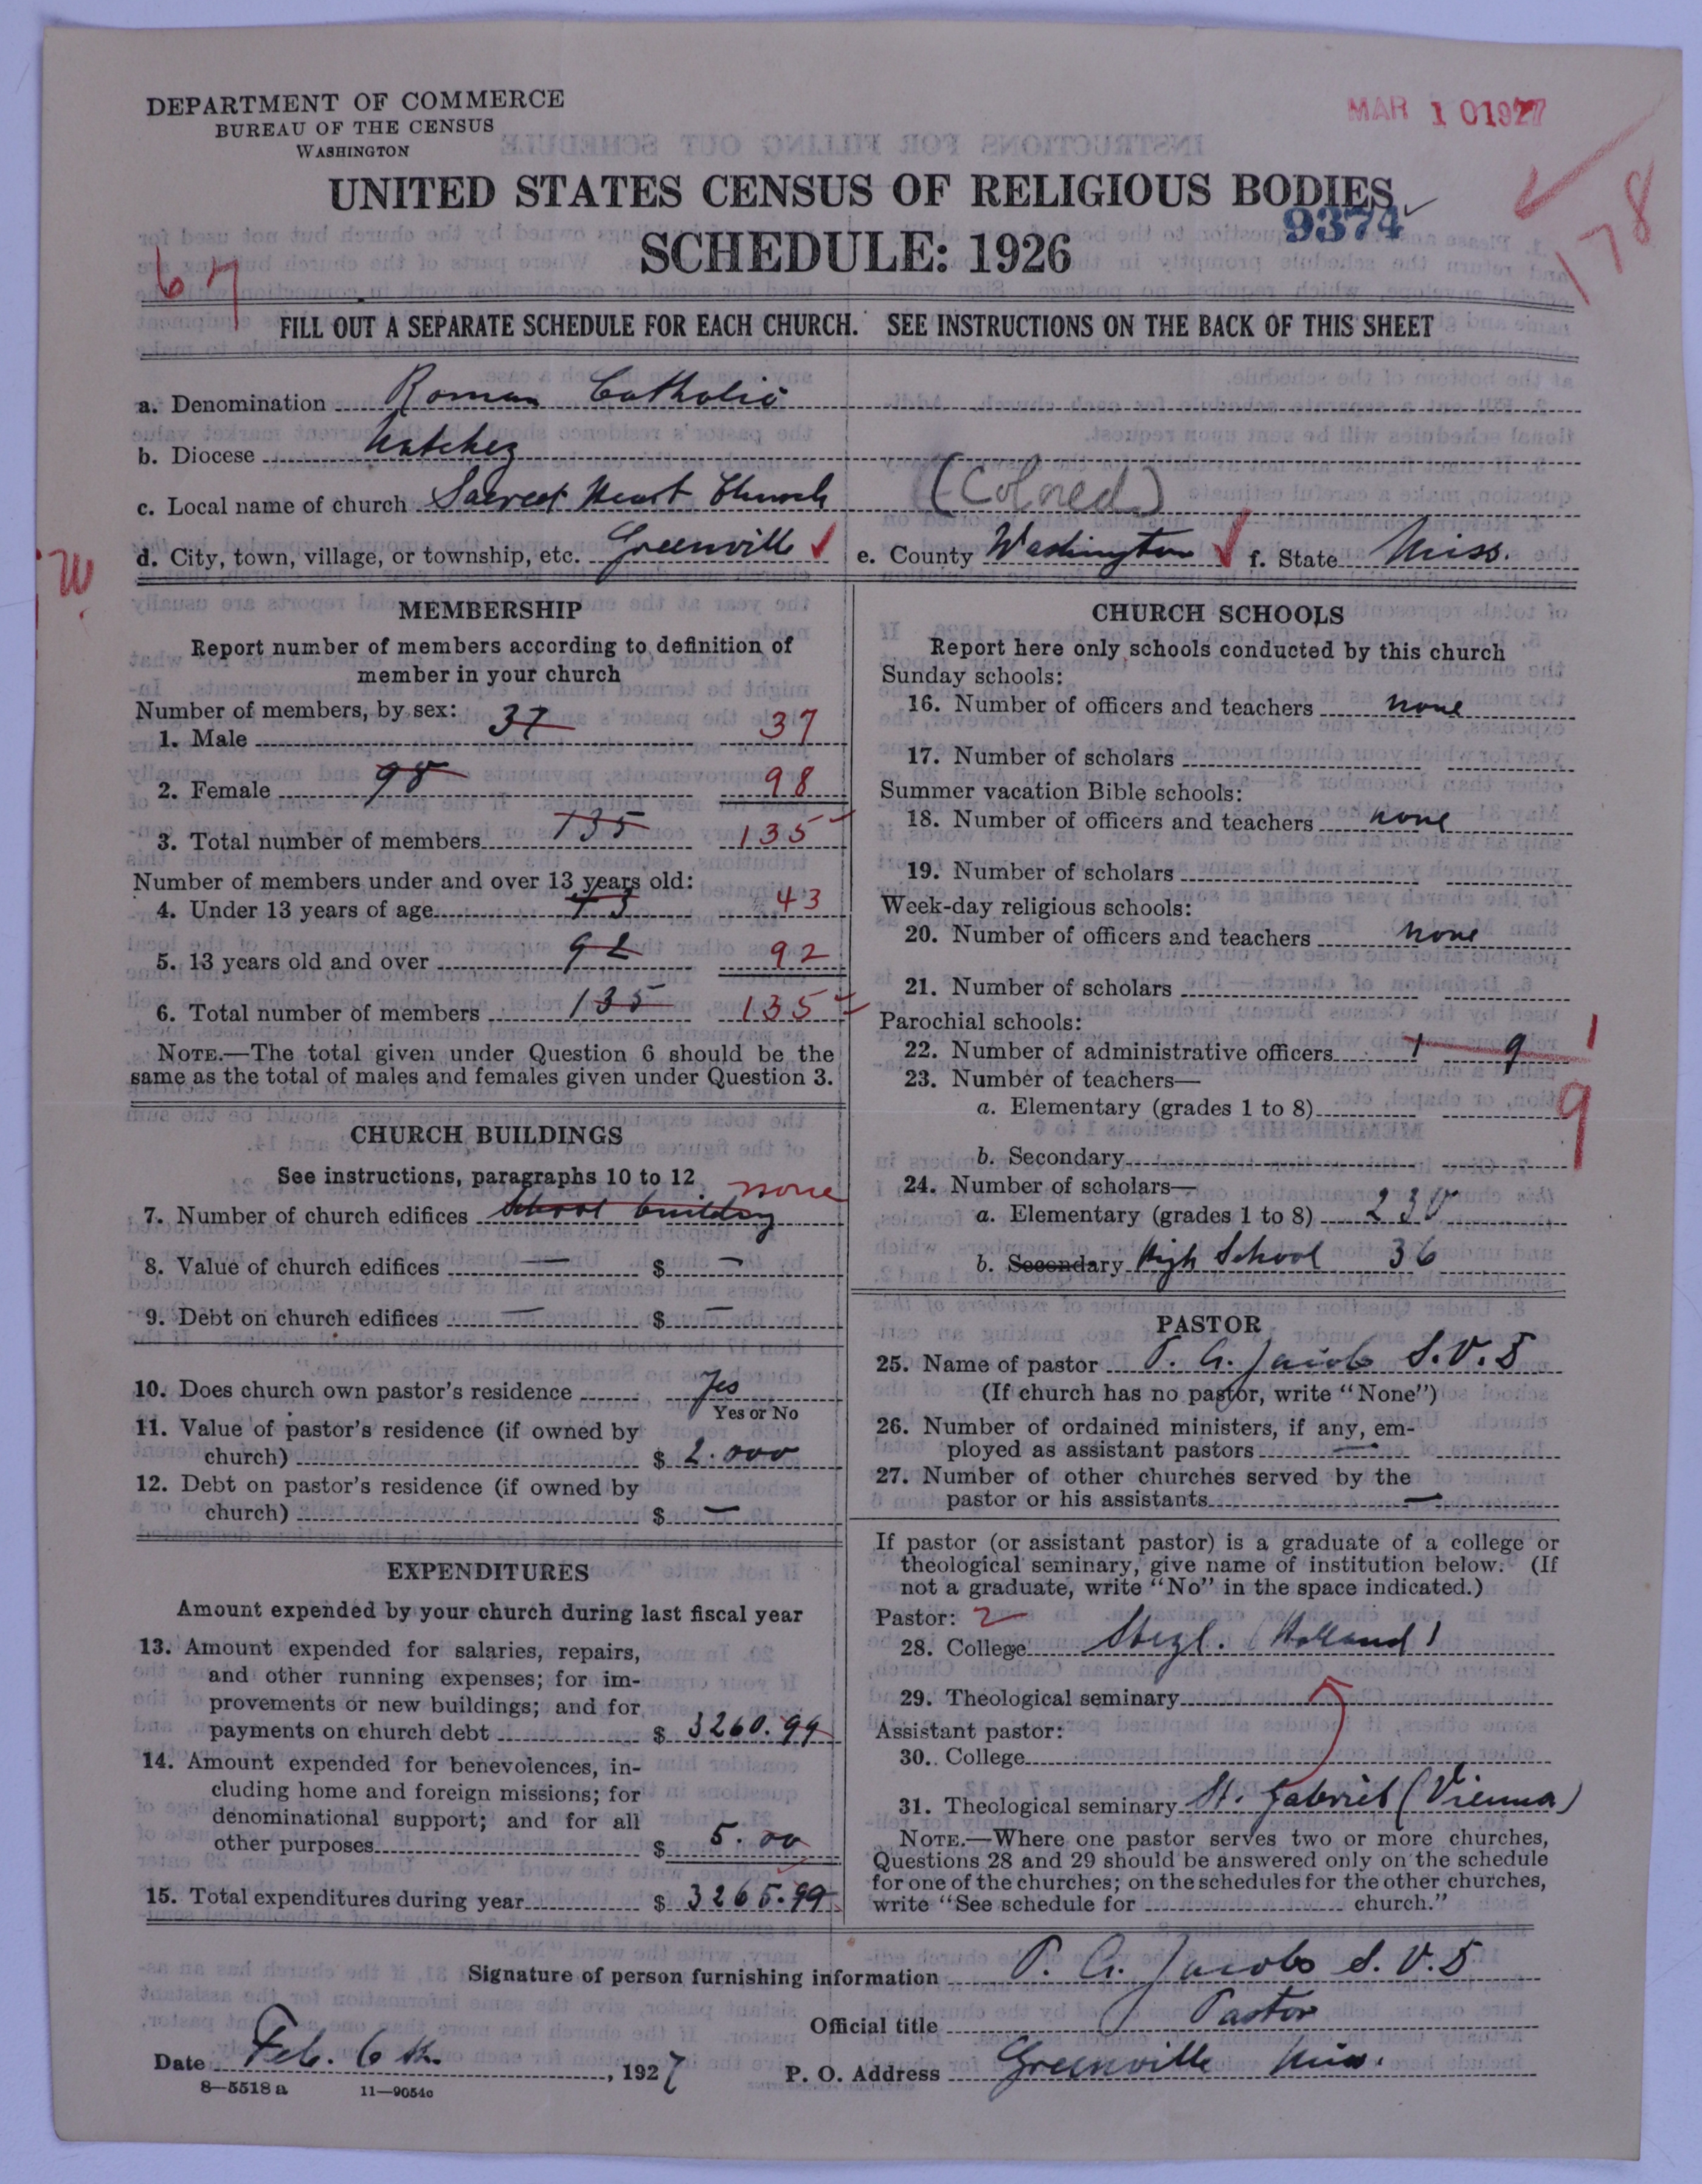 DEPARTMENT OF COMMERCE
BUREAU OF THE CENSUS
WASHINGTON
MAR 10 1927
UNITED STATES CENSUS OF RELIGIOUS BODIES
9374
SCHEDULE: 1926
178
67
FILL OUT A SEPARATE SCHEDULE FOR EACH CHURCH. SEE INSTRUCTIONS ON THE BACK OF THIS SHEET
a. Denomination Roman Catholic
b. Diocese Natchez
c. Local name of church Sacred Heart Church (Colored)
d. City, town, village, or township, etc. Greenville e. County Washington f. State Miss.
W
MEMBERSHIP
Report number of members according to definition of
member in your church
Number of members, by sex:
1. Male 37 37
2. Female 98 98
3. Total number of members 135 135
Number of members under and over 13 years old:
4. Under 13 years of age 43 43
5. 13 years old and over 92 92
6. Total number of members 135 135
NOTE.—The total given under Question 6 should be the
same as the total of males and females given under Question 3.
CHURCH BUILDINGS
See instructions, paragraphs 10 to 12
7. Number of church edifices School building none
8. Value of church edifices — $ —
9. Debt on church edifices — $ —
10. Does church own pastor's residence Yes
Yes or No
11. Value of pastor's residence (if owned by
church) $ 2.000
12. Debt on pastor's residence (if owned by
church) $ —
EXPENDITURES
Amount expended by your church during last fiscal year
13. Amount expended for salaries, repairs,
and other running expenses; for im-
provements or new buildings; and for
payments on church debt $ 3260.99
14. Amount expended for benevolences, in-
cluding home and foreign missions; for
denominational support; and for all
other purposes $ 5.00
15. Total expenditures during year $ 3265.99
CHURCH SCHOOLS
Report here only schools conducted by this church
Sunday schools:
16. Number of officers and teachers none
17. Number of scholars
Summer vacation Bible schools:
18. Number of officers and teachers none
19. Number of scholars
Week-day religious schools:
20. Number of officers and teachers none
21. Number of scholars
Parochial schools:
22. Number of administrative officers 1 9 1
23. Number of teachers—
a. Elementary (grades 1 to 8) 9
b. Secondary
24. Number of scholars—
a. Elementary (grades 1 to 8) 230
b. Secondary High School 36
PASTOR
25. Name of pastor P. A. Jacobs S.V.D
(If church has no pastor, write "None")
26. Number of ordained ministers, if any, em-
ployed as assistant pastors —
27. Number of other churches served by the
pastor or his assistants —
If pastor (or assistant pastor) is a graduate of a college or
theological seminary, give name of institution below. (If
not a graduate, write "No" in the space indicated.)
Pastor: 2
28. College Steyl. (Holland)
29. Theological seminary
Assistant pastor:
30. College
31. Theological seminary St. Gabriel (Vienna)
NOTE.—Where one pastor serves two or more churches,
Questions 28 and 29 should be answered only on the schedule
for one of the churches; on the schedules for the other churches,
write "See schedule for church."
Signature of person furnishing information P. A. Jacobs S.V.D
Official title Pastor
Date Feb. 6th. , 1927 P. O. Address Greenville Miss.
8—5518 a 11—9054c